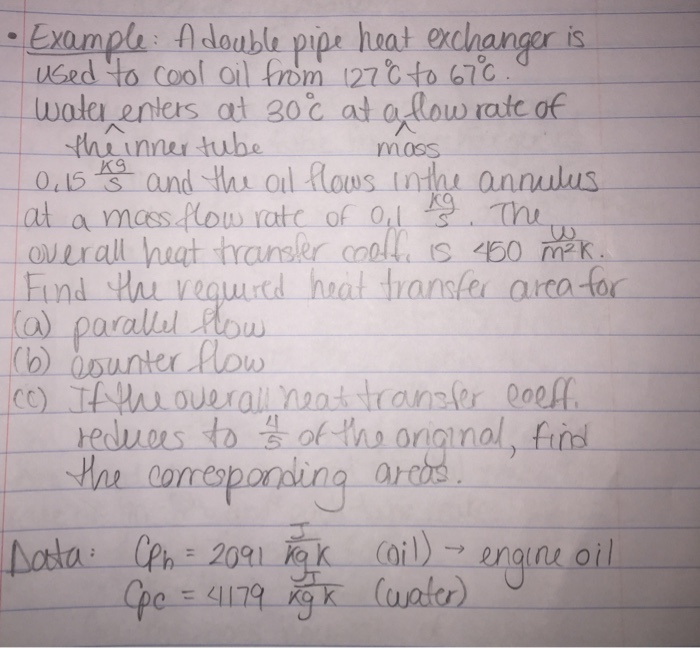 • Example: A double pipe heat exchanger is
used to cool oil from 127°C to 67°C.
Water enters at 30°C at a flow rate of
the inner tube mass
0.15 kg/s and the oil flows in the annulus
at a mass flow rate of 0.1 kg/s. The
overall heat transfer coeff. is 450 W/m²K.
Find the required heat transfer area for
(a) parallel flow
(b) counter flow
(c) If the overall heat transfer coeff.
reduces to 4/5 of the original, find
the corresponding areas.
Data: Cph = 2091 J/kg K (oil) → engine oil
Cpc = 4179 J/kg K (water)